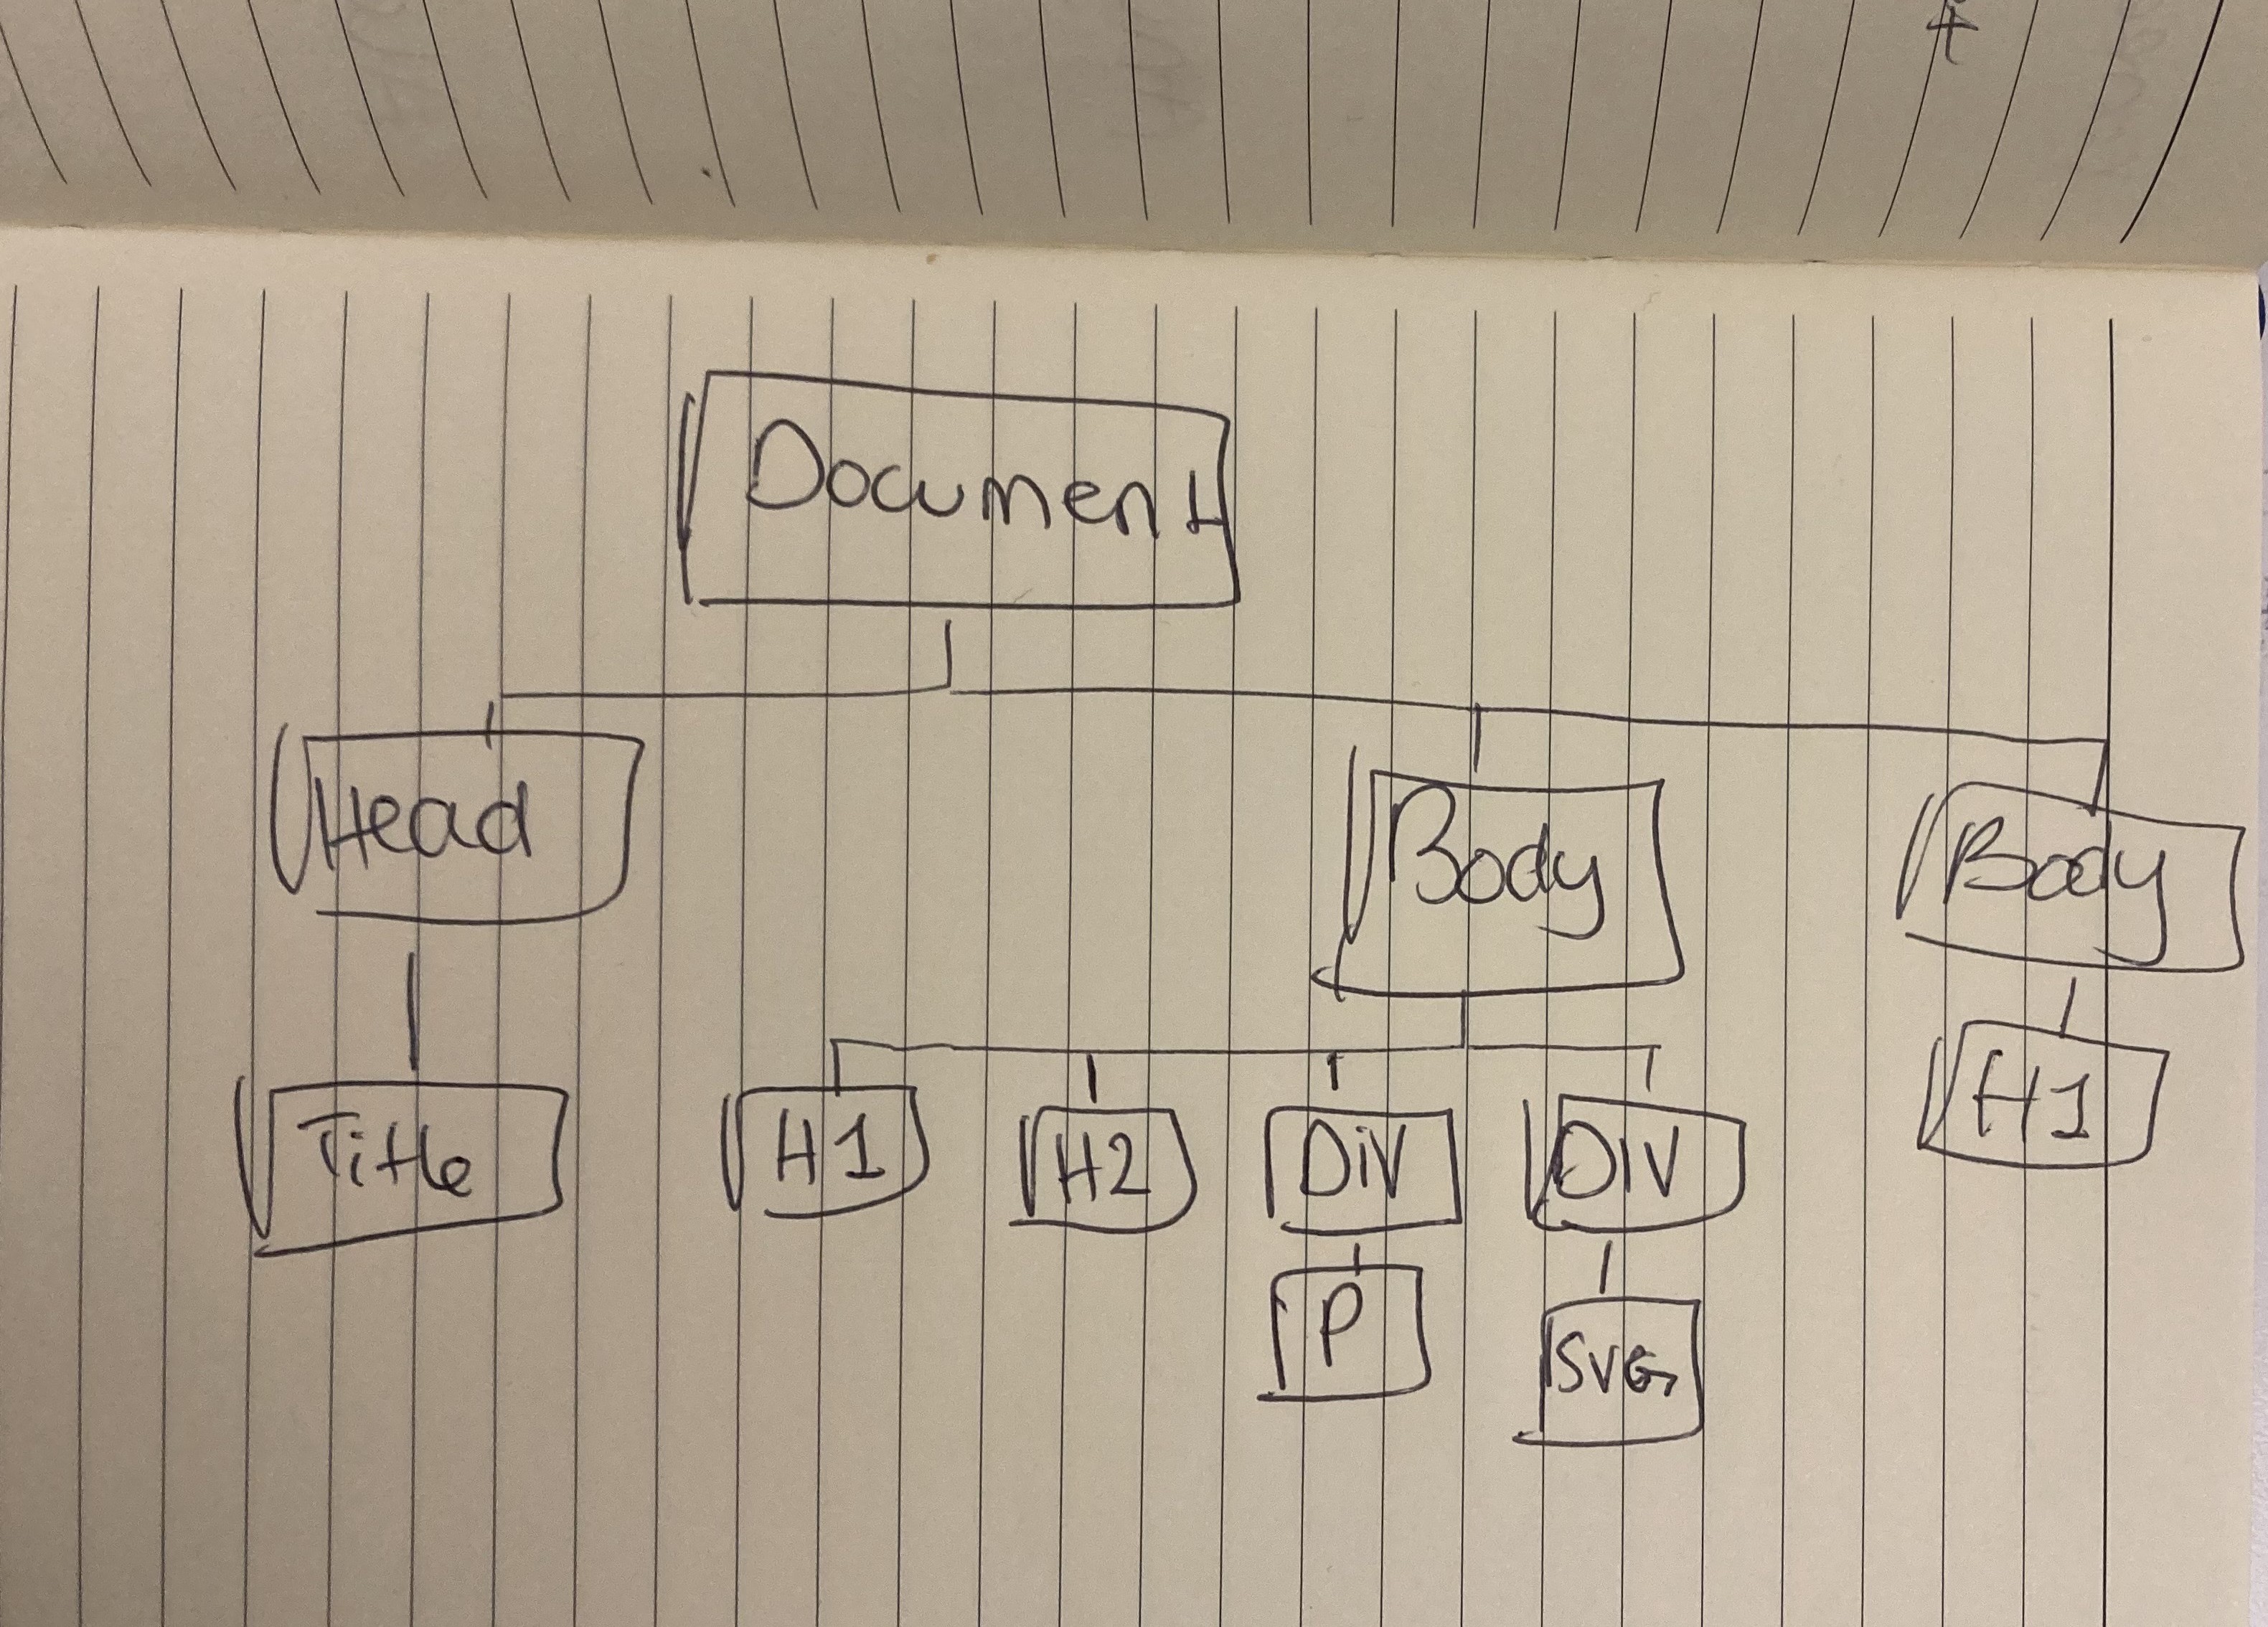 Document
Head Body Body
Title H1 H2 Div DIV H1
P SVG